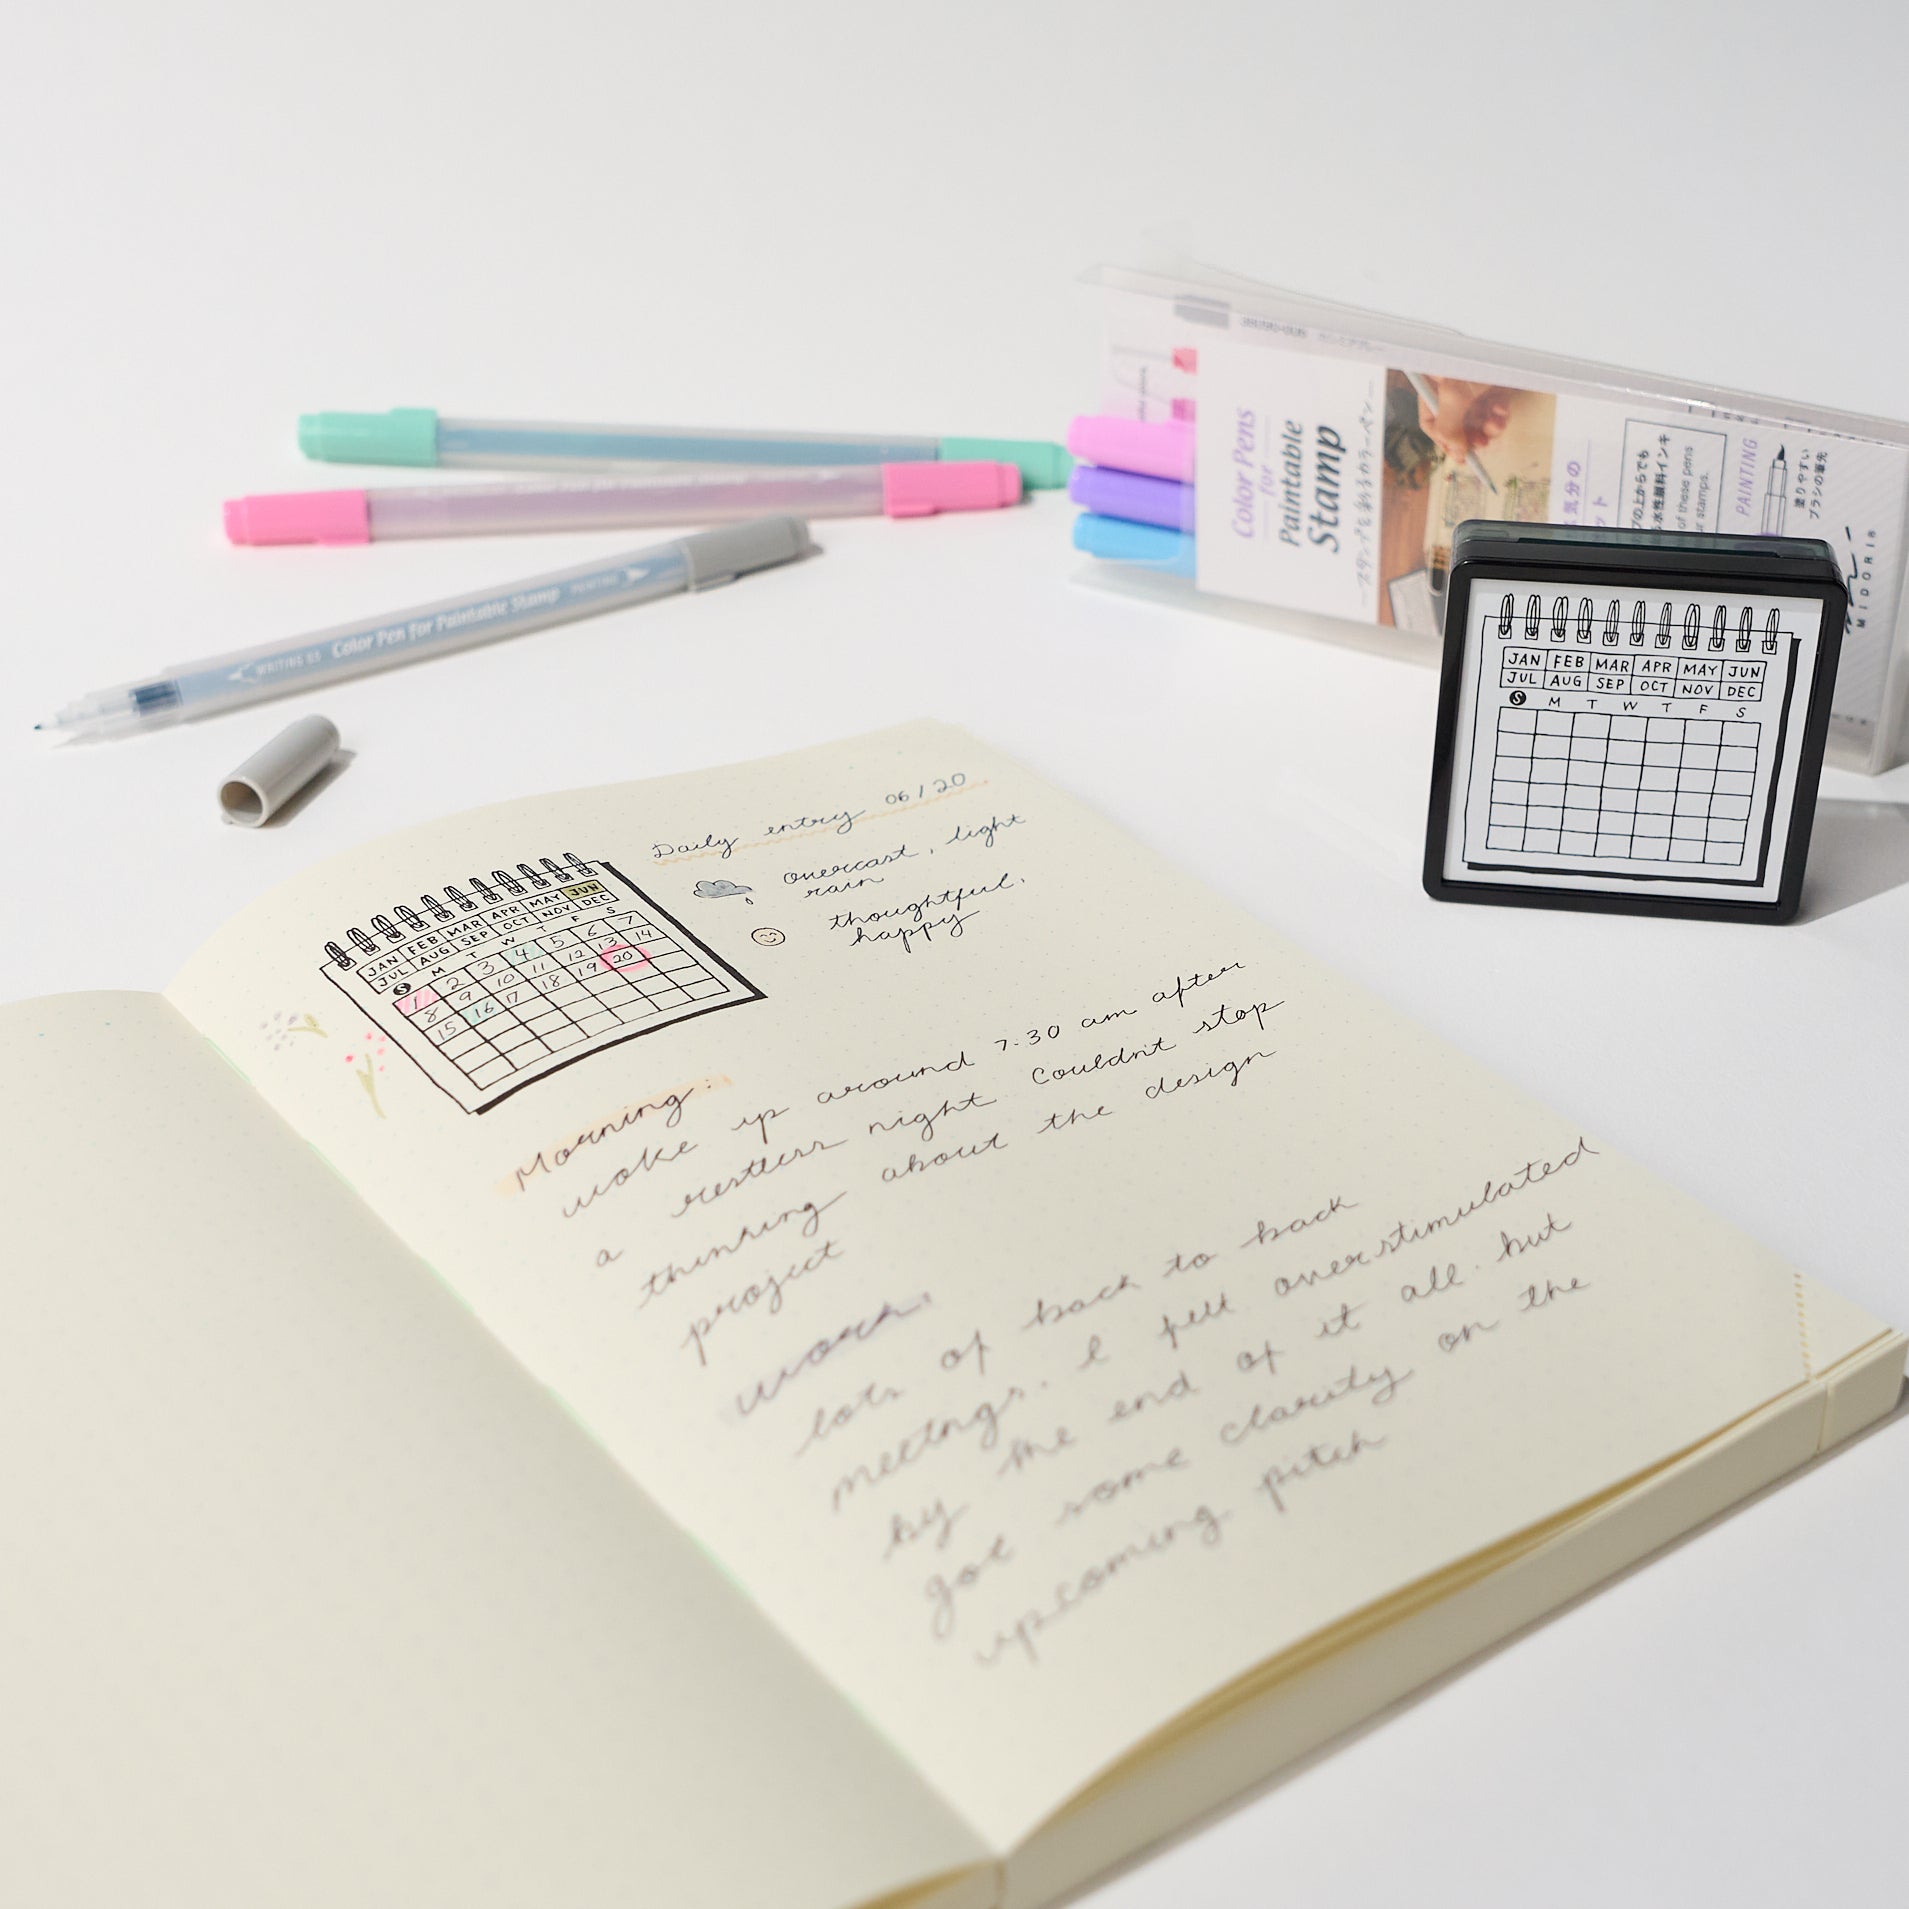 Daily entry 06/20
overcast, light
rain
thoughtful,
happy
JAN FEB MAR APR MAY JUN
JUL AUG SEP OCT NOV DEC
S M T W T F S
1 2 3 4 5 6 7
8 9 10 11 12 13 14
15 16 17 18 19 20
Morning:
woke up around 7:30 am after
a restless night. Couldn't stop
thinking about the design
project
Work:
lots of back to back
meetngs. I felt overstimulated
by the end of it all. but
got some clarity on the
upcoming pitch
WRITING 0.3 Color Pen for Paintable Stamp PAINTING
Color Pens
for
Paintable
Stamp
―スタンプを彩るカラーペン―
of these pens
PAINTING
塗りやすい
ブラシの筆先
MIDORI
JAN FEB MAR APR MAY JUN
JUL AUG SEP OCT NOV DEC
S M T W T F S